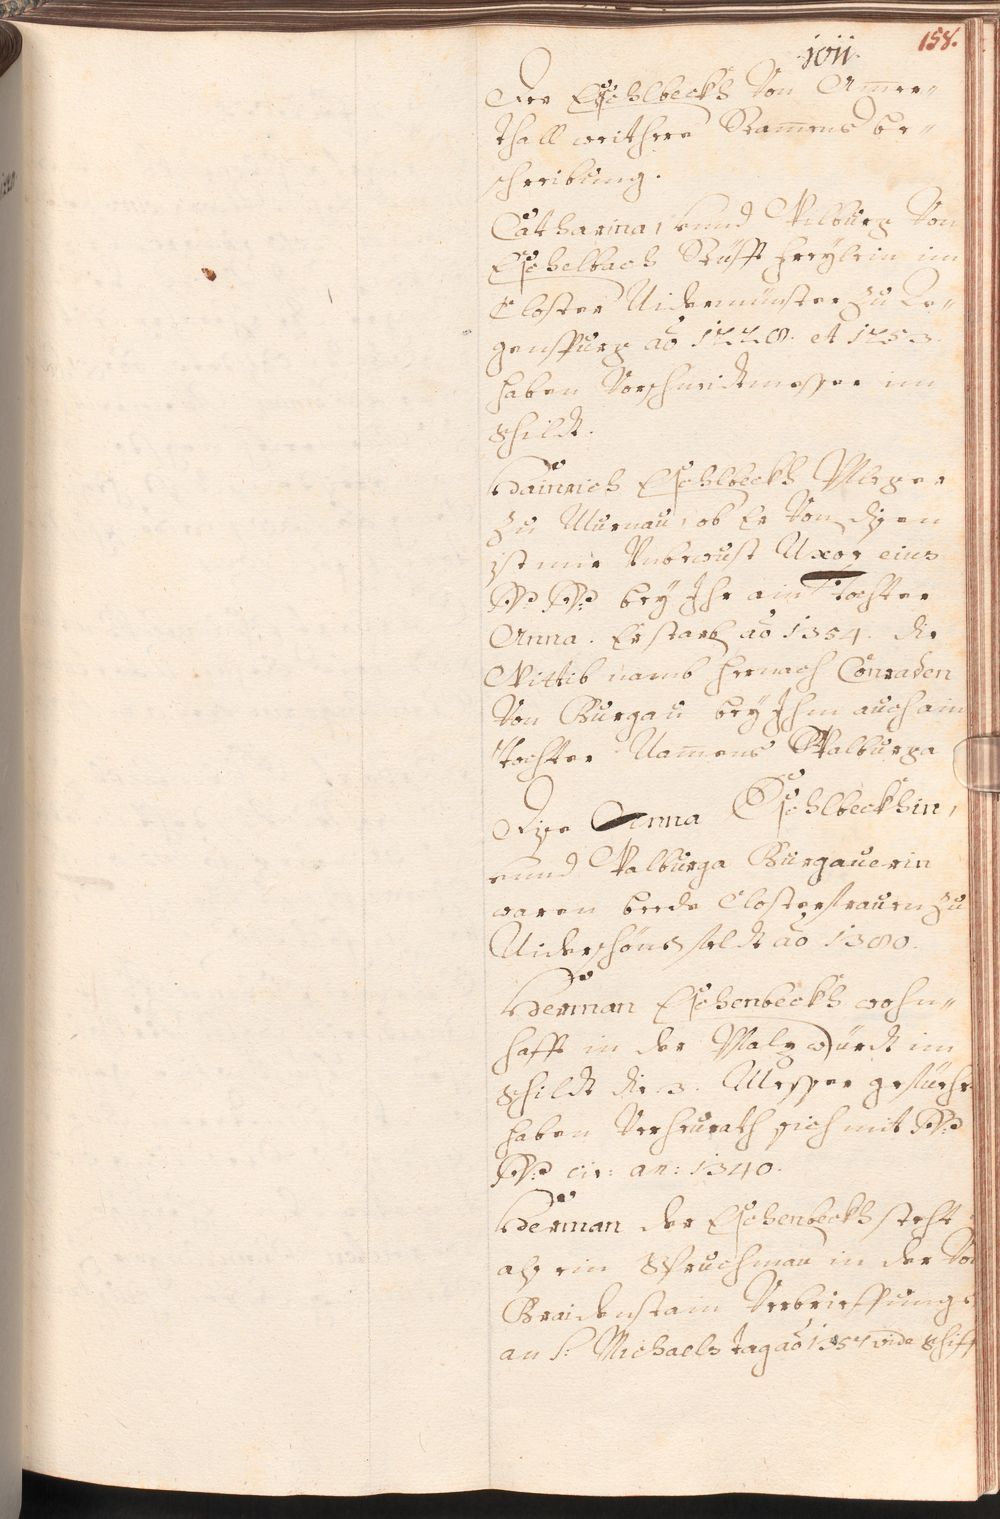 158.
1011.
Der Eschlbeckh Von Am̄er-
thall weithere Stam̄ens be-
schreibung.
Catharina, vnnd Wilburg Von
Eschelbach Stüfft freÿlein im
Closter Nidermünster zu Re-
genspurg aō 1228. et 1253.
haben Vorschneidtmesser im
Schildt.
Hainrich Eschlbeckh Pfleger
zu Murnau, ob Er Von disen
ist mir Vnbewust Uxor eius
N. N. beÿ Ihr ain Tochter
Anna. Er starb aō 1354. die
Wittib namb hernach Conraden
Von Burgau beÿ Ihm auch ain
Tochter Nam̄ens Walburga
Dise Anna Eschlbeckhin,
vnnd Walburga Burgauerin
waren beede Closterfrauen zu
Niderschönfeldt aō 1380.
Herman Eschenbeckh wohn-
hafft in der Pfalz würdt im
Schildt die 3. Messer gefüehrt
haben Verheurath sich mit N.
N. cir: an: 1340.
Herman der Eschenbeckh steht
als ein Spruchman in der Von
Braidenstain Verbrieffungs
an S: Michaels tag aō 1357 vide Schifft